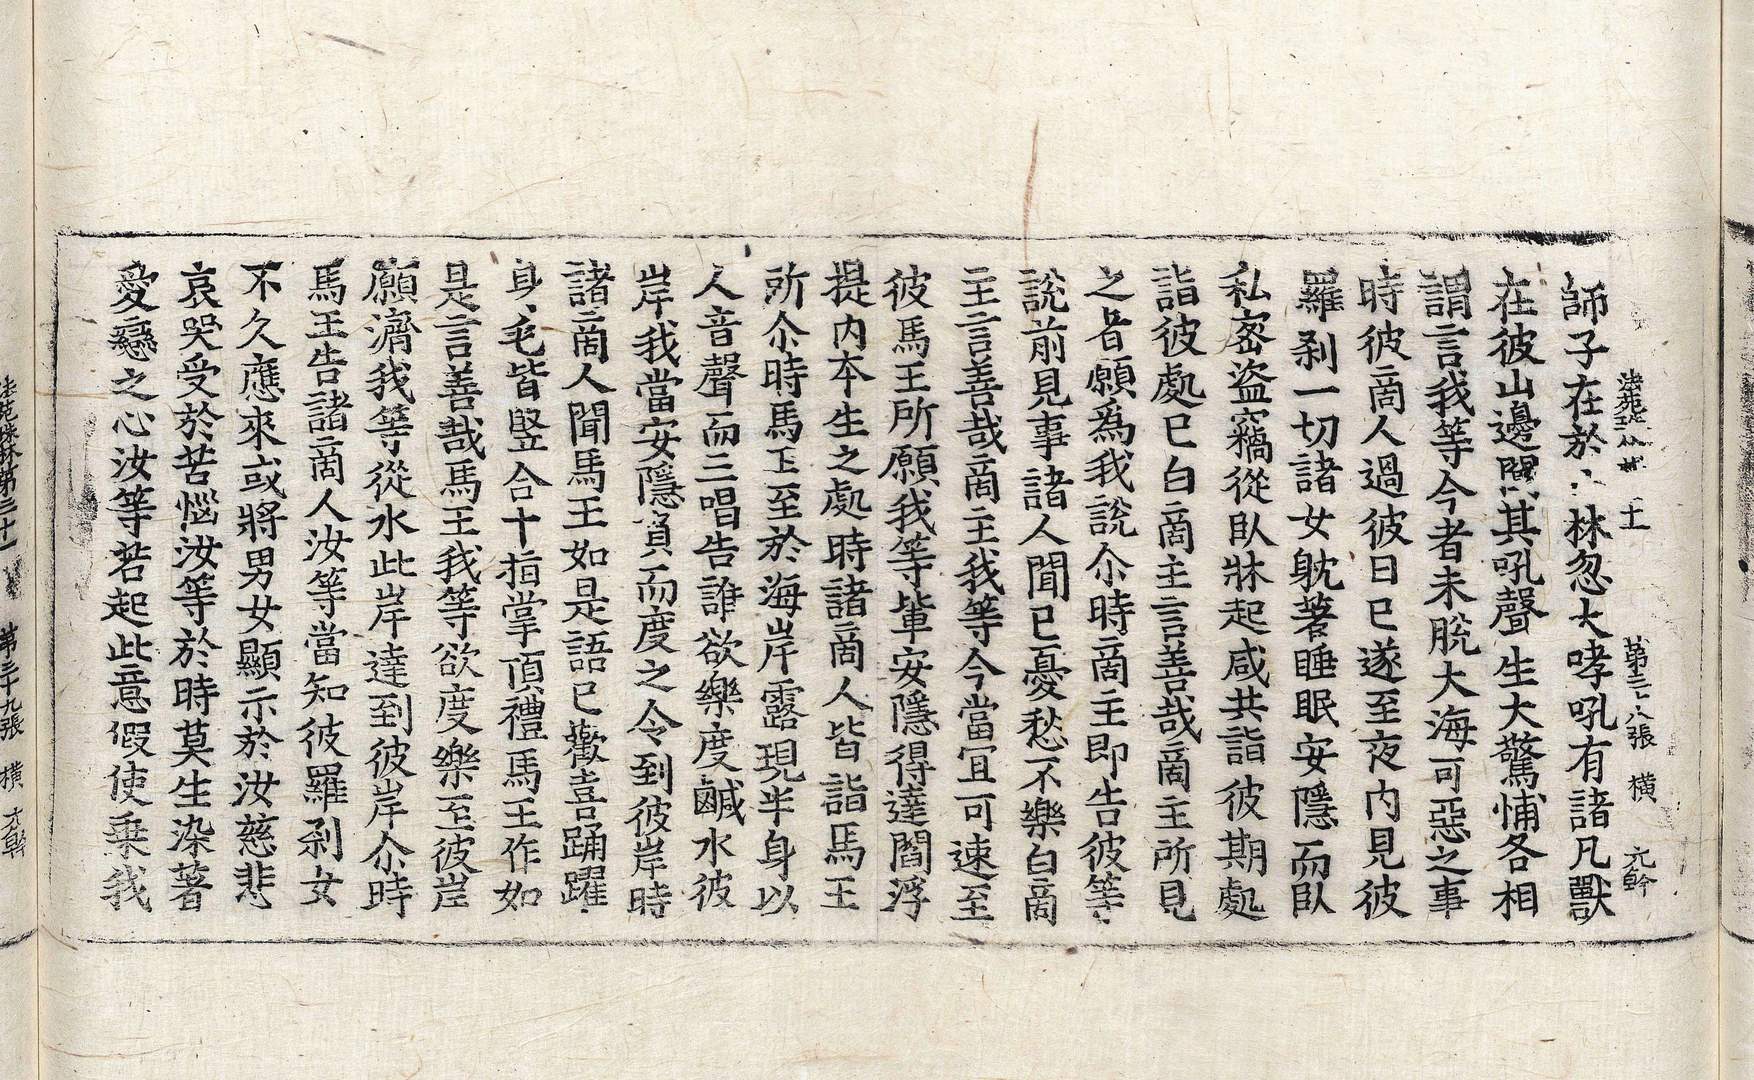 法苑珠林 十一 第三十八張 橫 元幹
師子在於林忽大哮吼有諸凡獸
在彼山邊聞其吼聲生大驚怖各相
謂言我等今者未脫大海可惡之事
時彼啇人過彼日已遂至夜內見彼
羅剎一切諸女躭著睡眠安隱而臥
私密盜竊從臥牀起咸共詣彼期處
詣彼處已白啇主言善哉啇主所見
之者願為我說尒時啇主即告彼等
說前見事諸人聞已憂愁不樂白啇
主言善哉啇主我等今當宜可速至
彼馬王所願我等輩安隱得達閻浮
提內本生之處時諸啇人皆詣馬王
所尒時馬王至於海岸露現半身以
人音聲而三唱告誰欲樂度鹹水彼
岸我當安隱負而度之令到彼岸時
諸啇人聞馬王如是語已歡喜踊躍
身毛皆竪合十指掌頂禮馬王作如
是言善哉馬王我等欲度樂至彼岸
願濟我等從水此岸達到彼岸尒時
馬王告諸啇人汝等當知彼羅剎女
不久應來或將男女顯示於汝慈悲
哀哭受於苦惱汝等於時莫生染著
愛戀之心汝等若起此意假使乗我
法苑珠林第三十一 第三十九張 橫 元幹